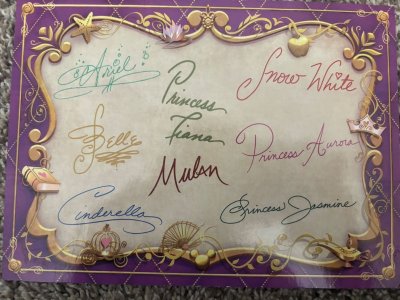 Ariel
Princess
Tiana
Snow White
Belle
Mulan
Princess Aurora
Cinderella
Princess Jasmine